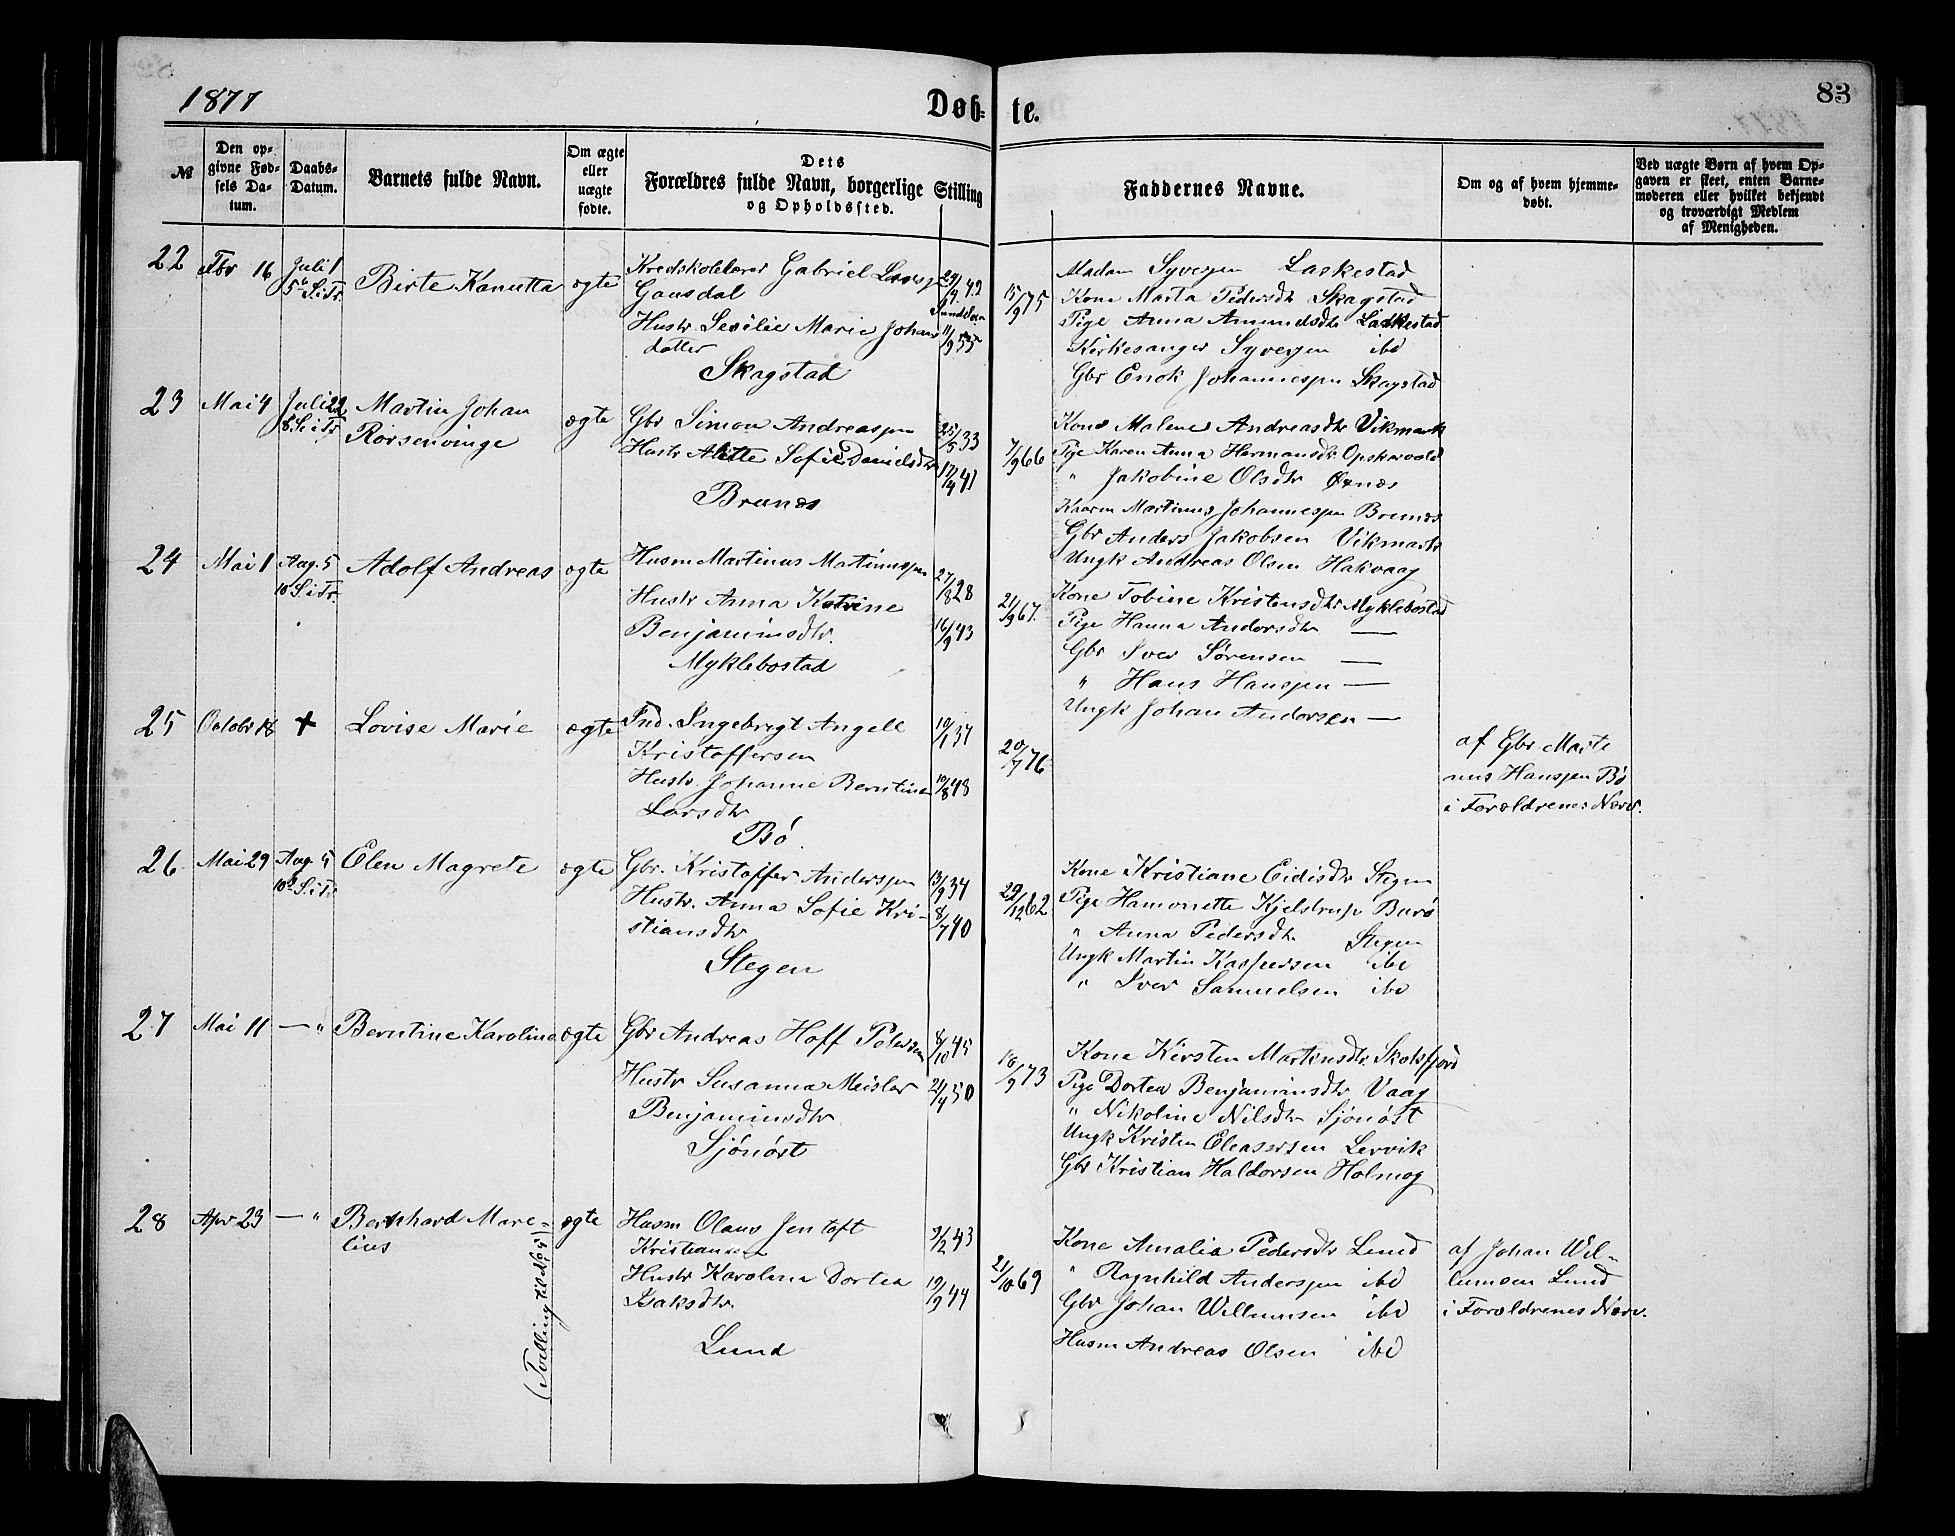 1877
Døb-
te.
83
№
Den op-
givne Fød-
sels Da-
tum.
Daabs-
Datum.
Barnets fulde Navn.
Om ægte
eller
uægte
fødte.
Dets
Forældres fulde Navn, borgerlige Stilling
og Opholdssted.
Faddernes Navne.
Om og af hvem hjemme-
døbt.
Ved uægte Børn af hvem Op-
gaven er skeet, enten Barne-
moderen eller hvilket bekjendt
og troværdigt Medlem
af Menigheden.
22 Fbr 16 Juli 1 Birte Kanutta ægte
5 S.i Tr.
Kredskolelærer Gabriel
Gausdal
Hustr Sesilie Marie Johans
datter 11/9 55
Skagstad
15/9 75
Madam Syversen Laskestad
Kone Marta Pedersdtr Skagstad
Pige Anna Amundsdtr Laskestad
Kirkesanger Syversen ibd
Gbr Enok Johannessen Skagstad
23 Mai 4 Juli 22 Martin Johan ægte
8 S i Tr Rørsenvinge
Gbr Simon Andreassen 25/5 33
Hustr Alette Sofie Danielsdtr 17/4 41
Brunes
7/9 66
Kone Malene Andreasdtr Vikmark
Pige Karen Anna Hermansdtr
" Jakobine Olsdtr Øxnes
Martinus Johannessen Brunes
Gbr Anders Jakobsen Vikmark
Ungk Andreas Olsen Hakvaag
24 Mai 1 Aug. 5 Adolf Andreas ægte
10 S i Tr.
Husm Martinus Martinussen 27/8 28
Hustr Anna Katrine
Benjaminsdtr. 16/9 43
Myklebostad
21/9 67.
Kone Tobine Kristensdtr Myklebostad
Pige Hanna Andorsdtr —
Gbr Iver Sørensen —
" Hans Hanssen —
Ungk Johan Andorsen —
25 Octobr 18 + Lovise Marie ægte
Ind. Ingebregt Angell 10/1 37
Kristoffersen
Hustr. Johanne Berntine 10/8 48
Larsdtr
Bø
20/7 76
af Gbr Marti
nus Hanssen Bø
i Forældrenes Nærv.
26 Mai 29 Aug. 5 Elen Magrete ægte
10 S.i Tr.
Gbr. Kristoffer Anderssen 13/9 37
Hustr. Anna Sofie Kri- 8/7 40
stiansdtr
Stegen
29/12 62
Kone Kristiane Eidisdtr Stegen
Pige Hamonette Kjelstrup Burø
" Anna Pedersdtr Stegen
Ungk Martin Kaspersen ibd
" Iver Samuelsen ibd
27 Mai 11 — " Berntine Karoline ægte
Gbr Andreas Hoff Petersen 8/10 45
Hustr Susanna Meisler 21/4 50
Benjaminsdtr
Sjønøst
18/9 73
Kone Kirsten Martinsdtr Skotsfjord
Pige Dortea Benjaminsdtr Vaag
" Nikoline Nilsdtr Sjønøst
Ungk Kristen Eleasersen Lervik
Gbr Kristian Haldorsen Holmog
28 Apr 23 — " Bernhard Mare- ægte
lius
(Tvilling
Husm Olaus Jentoft 2/2 43
Kristiansen
Hustr Karolina Dortea 19/9 44
Isaksdtr.
Lund
21/10 69
Kone Amalia Pedersdtr Lund
" Ragnhild Anderssen ibd
Gbr Johan Willumsen ibd
Husm Andreas Olsen ibd
af Johan Wil-
lumsen Lund
i Forældrenes Nærv.